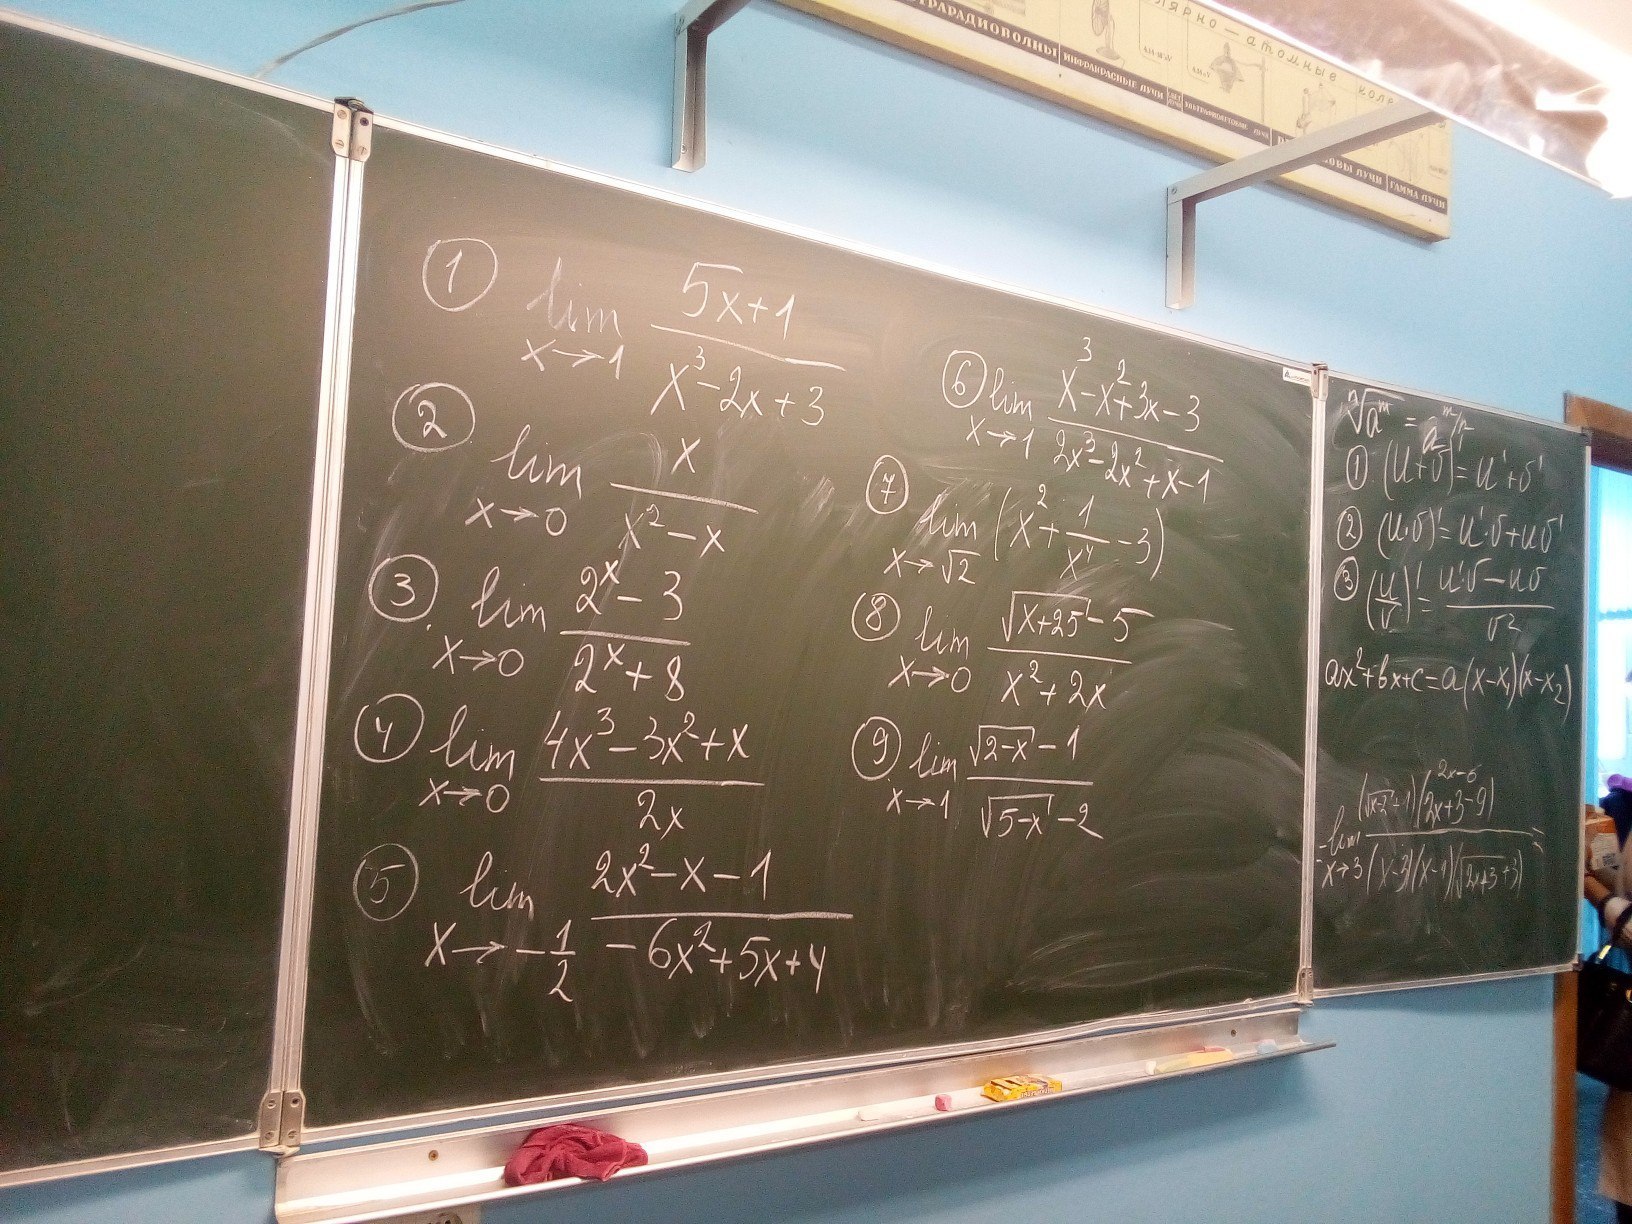 ТРАРАДИОВОЛНЫ
ИНФРАКРАСНЫЕ ЛУЧИ
УЛЬТРАФИОЛЕТОВЫЕ ЛУЧИ
ГАММА ЛУЧИ
лярно — атомные
① lim x→1 (5x+1)/(x³-2x+3)
② lim x→0 x/(x²-x)
③ lim x→0 (2ˣ-3)/(2ˣ+8)
④ lim x→0 (4x³-3x²+x)/(2x)
⑤ lim x→-1/2 (2x²-x-1)/(-6x²+5x+4)
⑥ lim x→1 (x³-x²+3x-3)/(2x³-2x²+x-1)
⑦ lim x→√2 (x²+1/x⁴-3)
⑧ lim x→0 (√(x+25)-5)/(x²+2x)
⑨ lim x→1 (√(2-x)-1)/(√(5-x)-2)
ⁿ√aᵐ = a^(m/n)
① (u+v)' = u'+v'
② (u·v)' = u'·v+uv'
③ (u/v)' = (u'v-uv)/v²
ax²+bx+c=a(x-x₁)(x-x₂)
2x-6
lim x→3 ((√(x-2)+1)(2x+3-9))/((x-3)(x-1)(√(2x+3)+3)) =